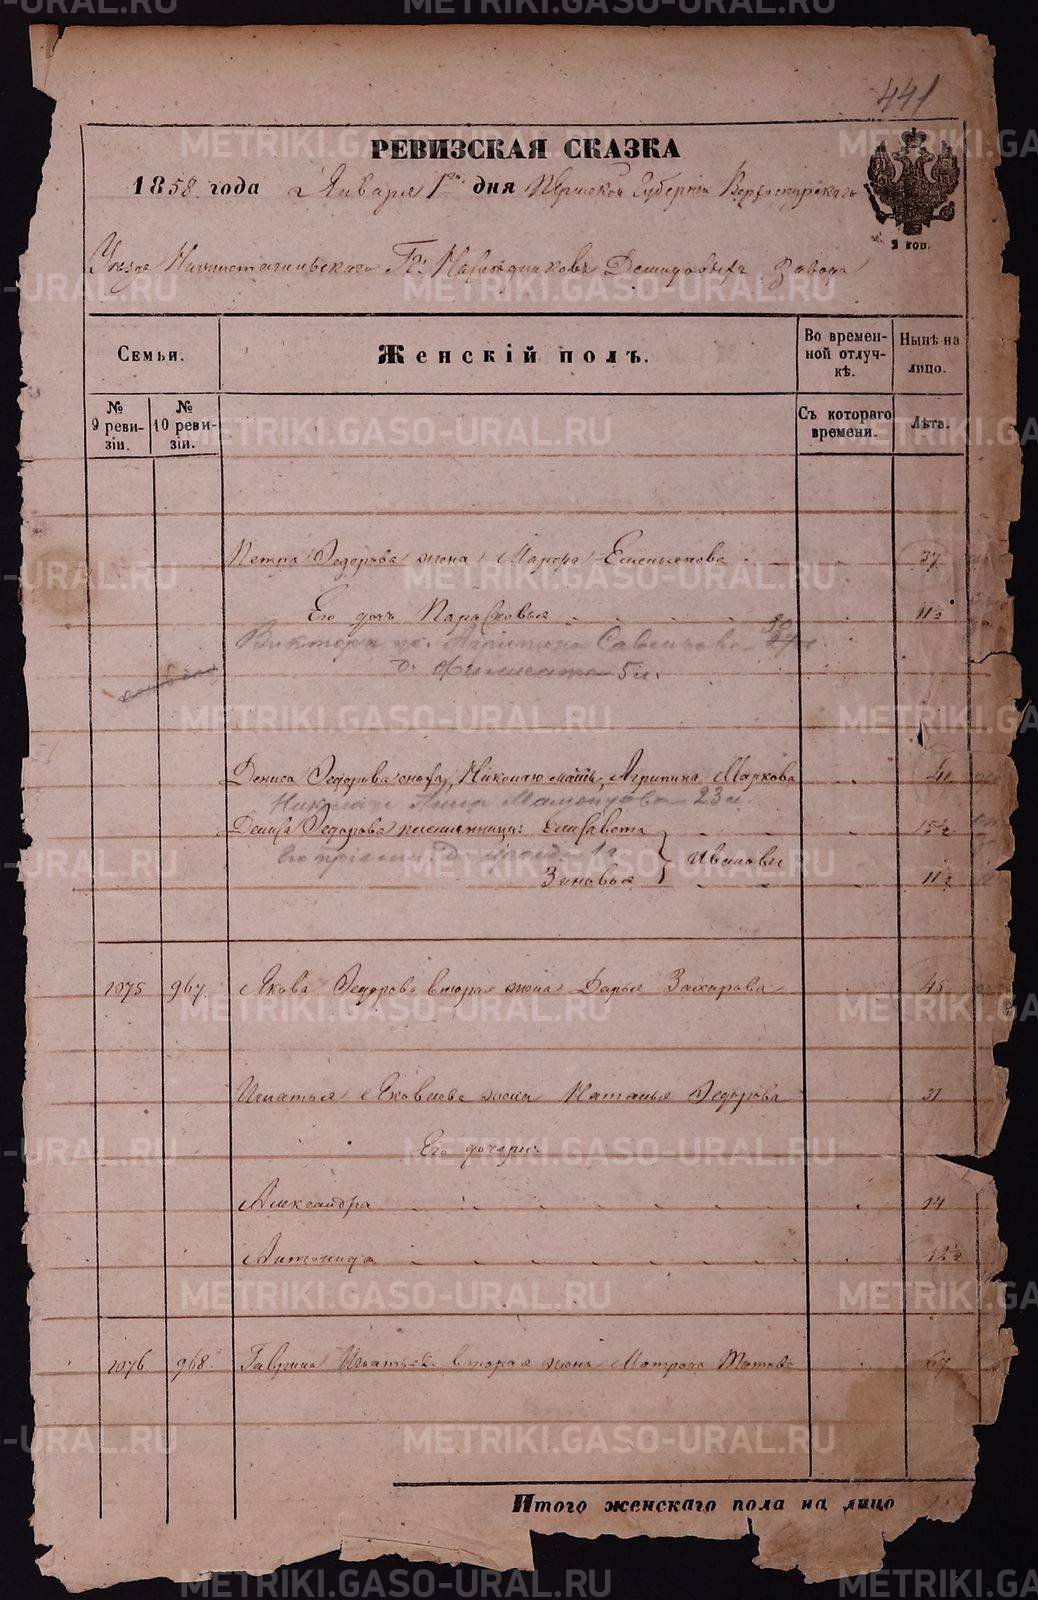 441
РЕВИЗСКАЯ СКАЗКА
1858 года Января 1го дня Пермской Губернiи Верхотурскаго
2 коп.
Уезда Нижнетагильскаго Гг: Наследниковъ Демидовыхъ завода
Семьи.
Женскiй полъ.
Во временной отлучкѣ.
Нынѣ на лицо.
№ 9 ревизiи.
№ 10 ревизiи.
Съ котораго времени.
Лѣта.
Петра Федорова жена Марфа 37
Его дочь Парасковья 11½
Виктора ж. Агрипина Савельева 30
5 л.
Дениса Федорова сноха, Николаю мать, Агрипина Маркова
Анна 23 л.
Дениса Федорова племянницы: Елисавета 15½
Ивановы
Зиновья 11½
1075 967. Якова Федорова вторая жена Дарья Захарова 45
Игнатья Яковлева жена Наталья Федорова 31
Его дочери:
Александра 14
Антонида 12½
1076 968. Гаврила Игнатьева вторая жена Матрона Титова 67
Итого женскаго пола на лицо
METRIKI.GASO-URAL.RU